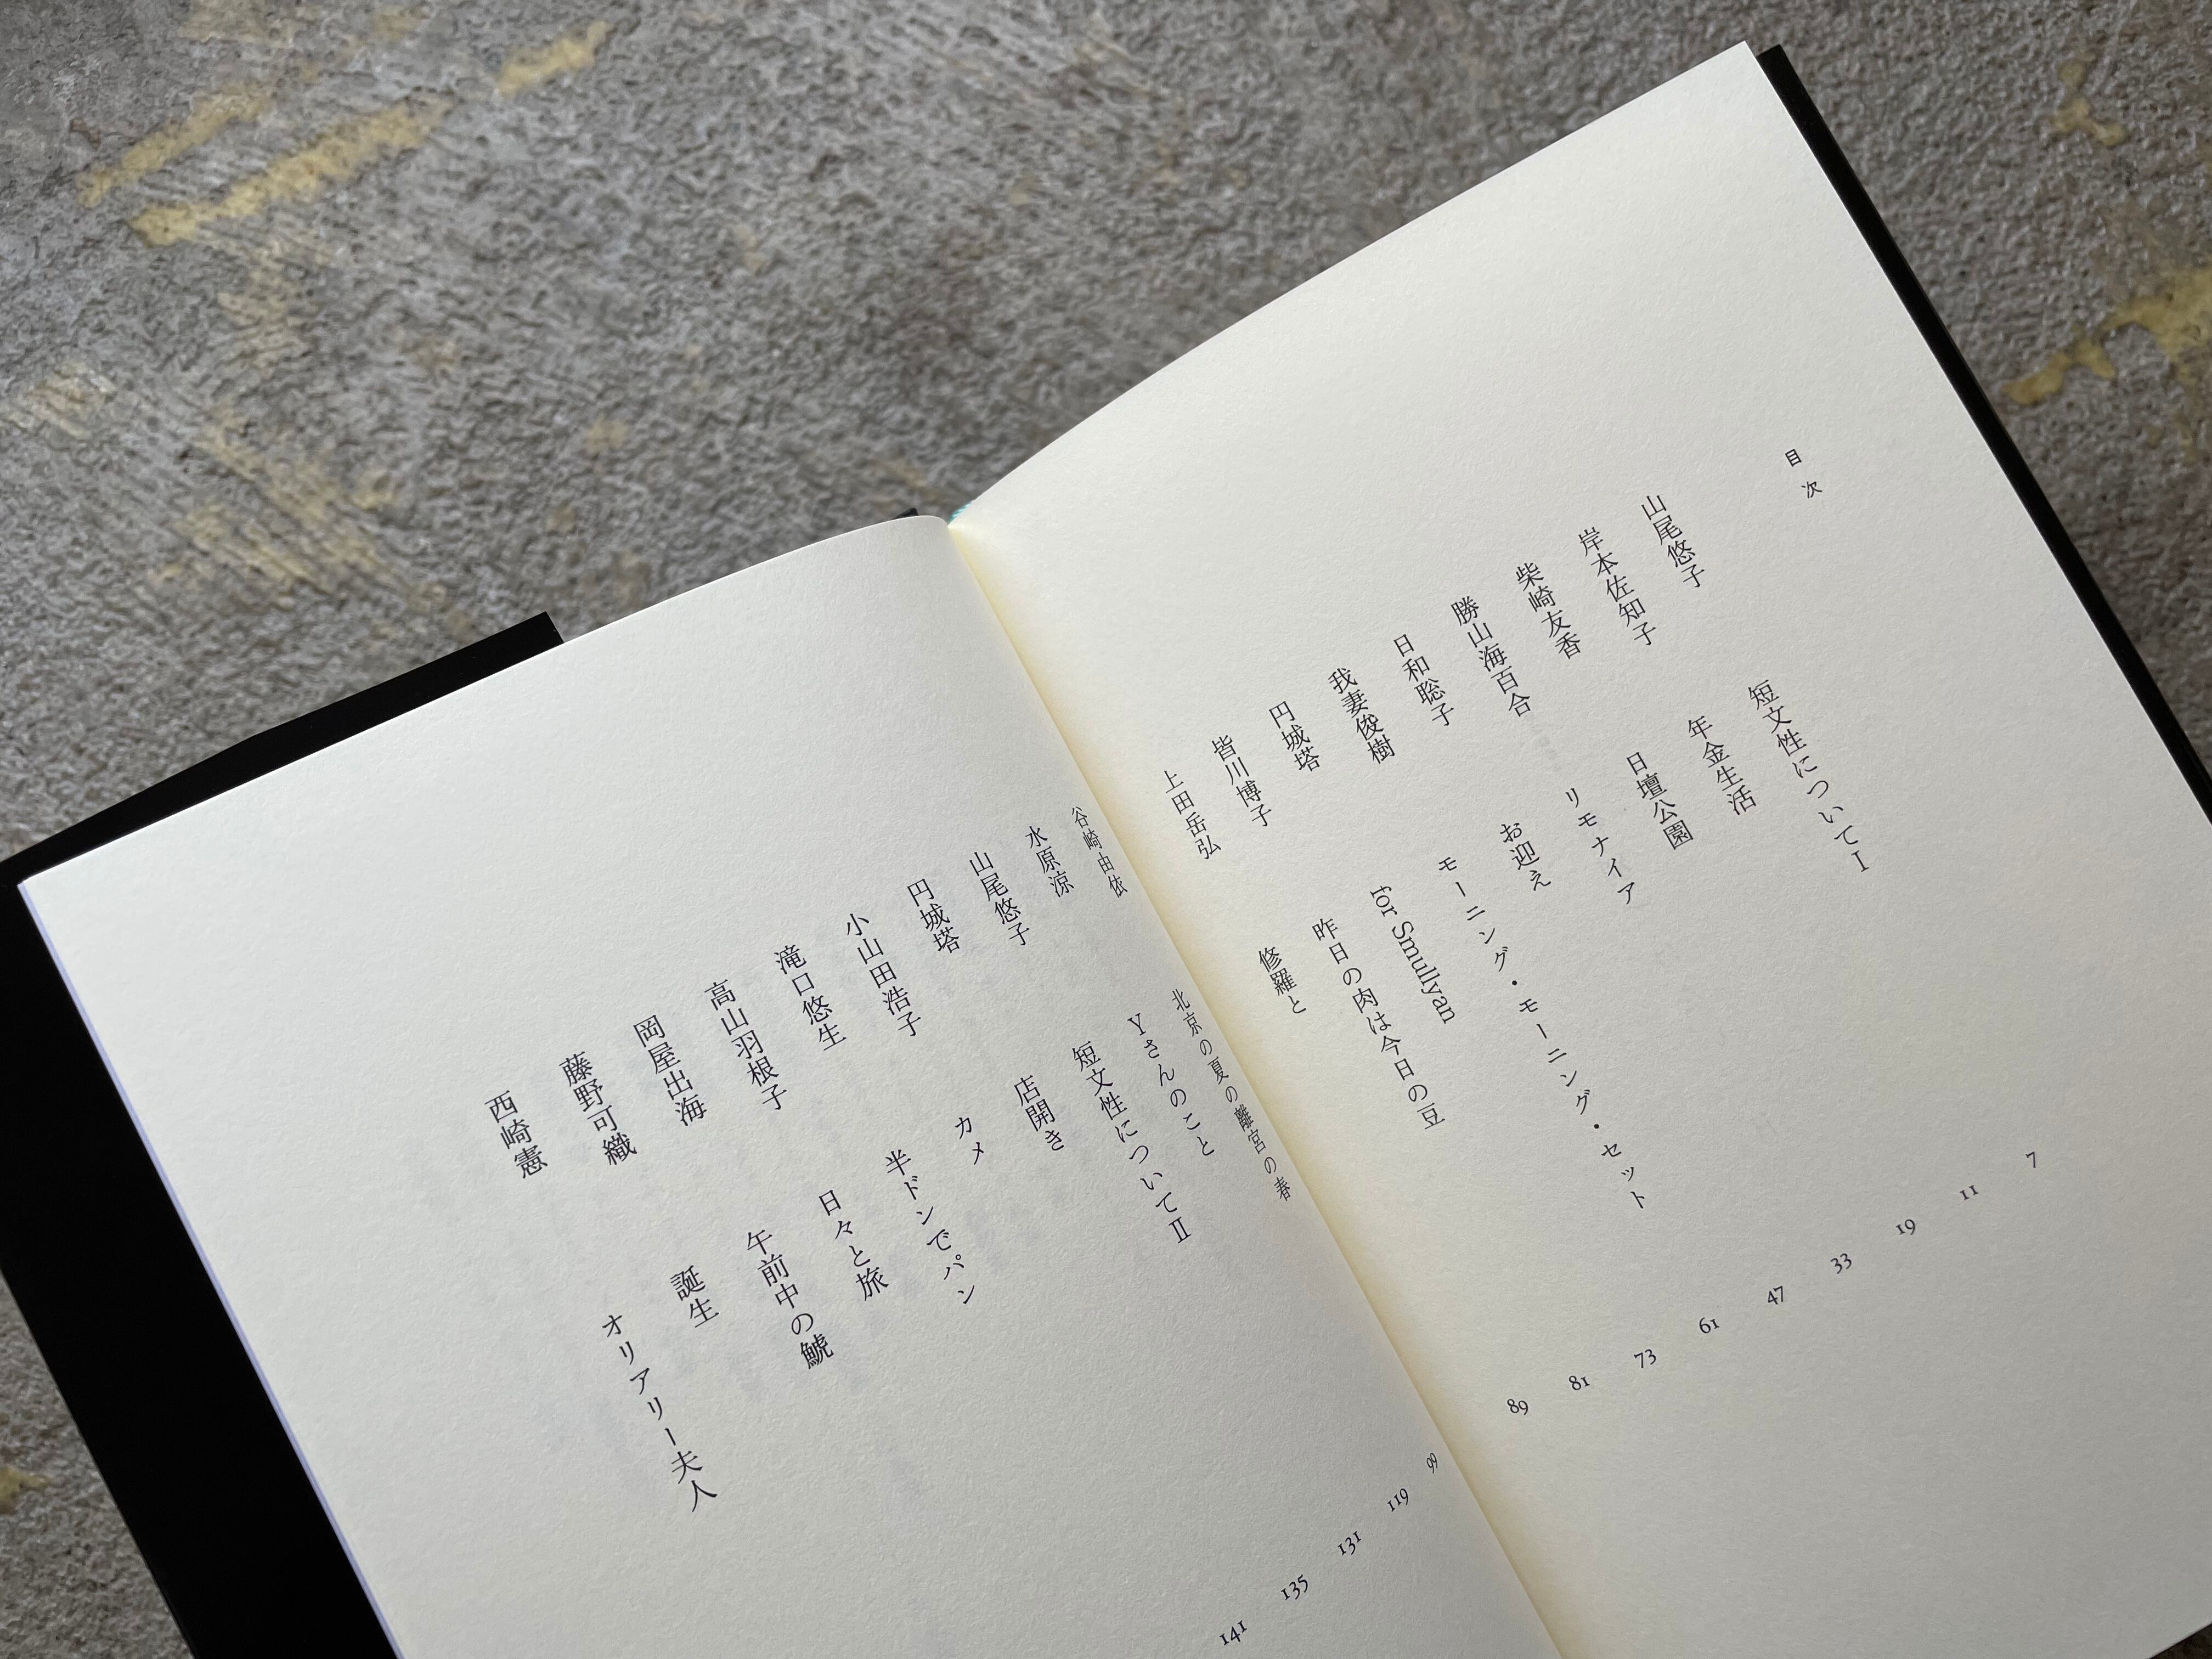 目次
山尾悠子 短文性についてI 7
岸本佐知子 年金生活 11
柴崎友香 日壇公園 19
勝山海百合 リモナイア 33
日和聡子 お迎え 47
我妻俊樹 モーニング・モーニング・セット 61
円城塔 for Smullyan 73
皆川博子 昨日の肉は今日の豆 81
上田岳弘 修羅と 89
谷崎由依 北京の夏の離宮の春 99
水原涼 Yさんのこと 119
山尾悠子 短文性についてII 131
円城塔 店開き 135
小山田浩子 カメ 141
滝口悠生 半ドンでパン
高山羽根子 日々と旅
岡屋出海 午前中の鯱
藤野可織 誕生
西崎憲 オリアリー夫人